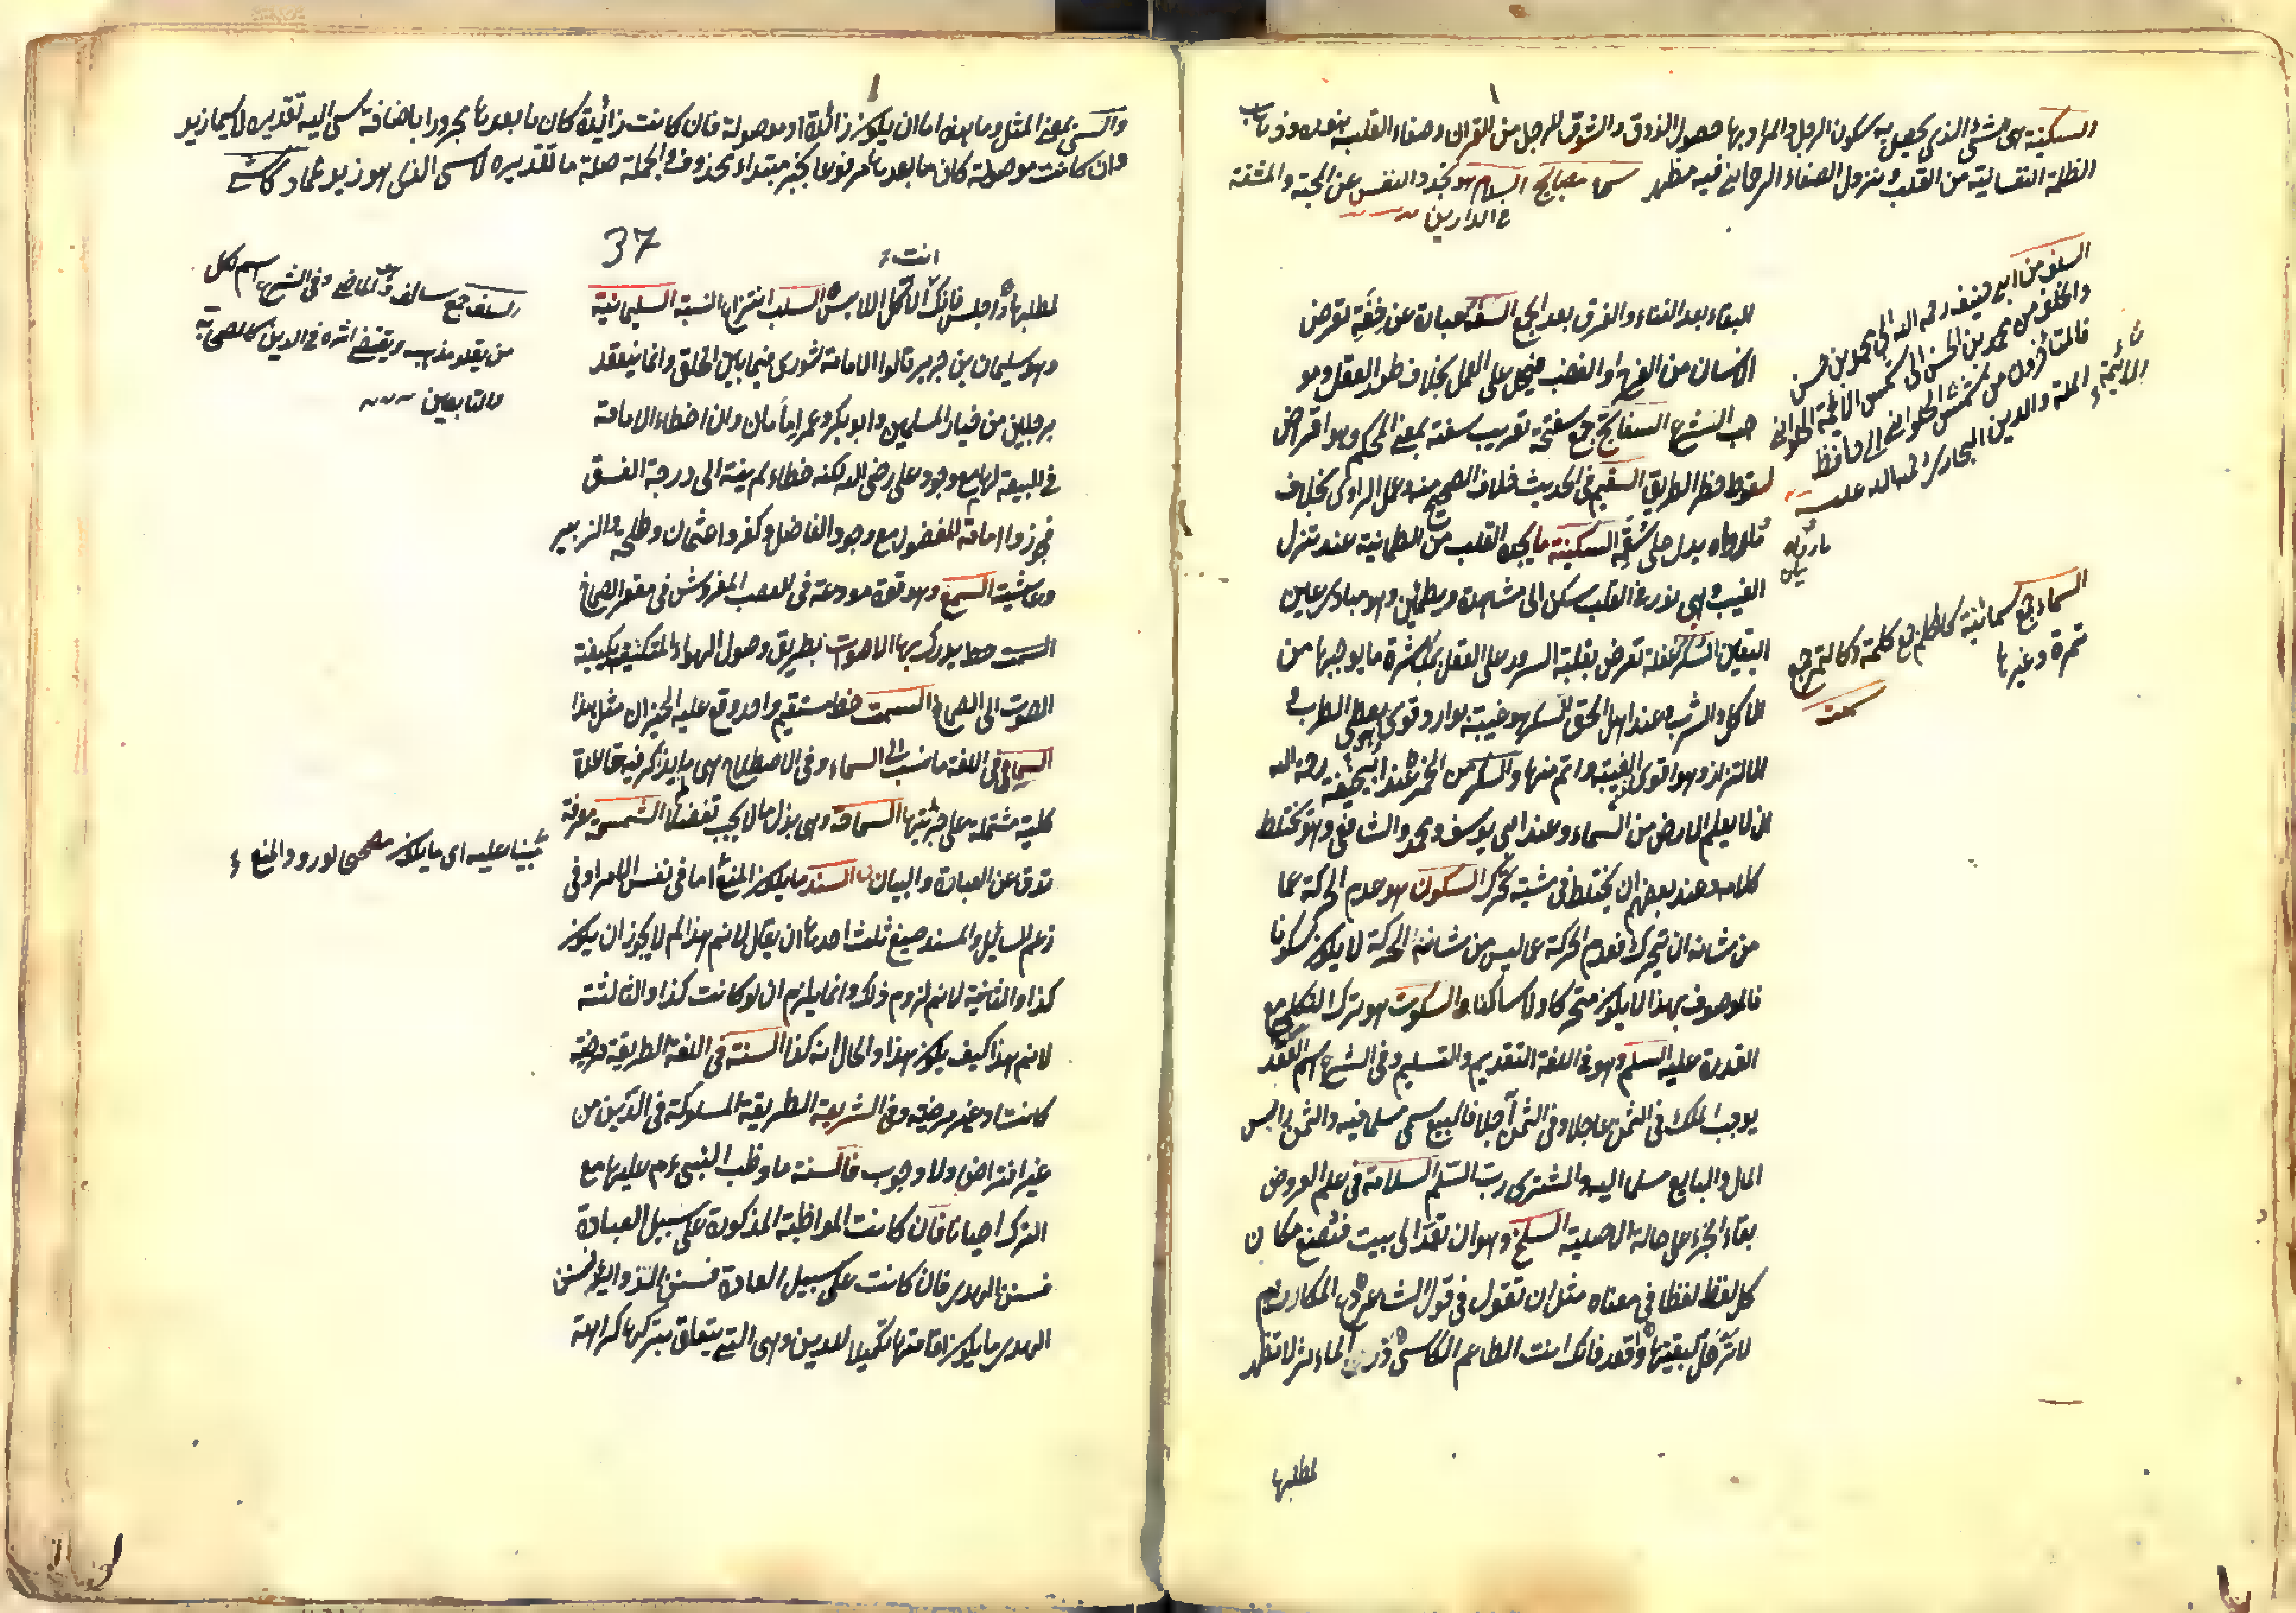 السكينة هى شئ الذى يحصل به سكون الرجل والمراد بها حصول الذوق والشوق للرجل من القران وصفاء القلب بنوره وذهاب
الظلمة النفسانية من القلب ونزول الصفاء الرحمانى فيه مظهر سما مصابيح السلام هو تجرد النفس عن المحبة والمشقة
فى الدارين
السلف من ابى حنيفة رحمه الله الى محمد بن حسن
والخلف من محمد بن الحسن الى شمس الائمة الحلوانى
فالمتأخرون من شمس الحلوانى الى حافظ
الملة والدين البخارى رحمة الله عليه
البقاء بعد الفناء والفرق بعد الجمع السفه عبارة عن خفة تعرض
الانسان من الفرح او الغضب فيحمل على العمل بخلاف طور العقل وموجب
الشرع السفاتج جمع سفتجة تعريب سفته بمعنى المحكم وهو اقراض
لسقوط خطر الطريق السقيم فى الحديث خلاف الصحيح منه وعمل الراوى بخلاف
ما رواه يدل على سقمه السكينة ما يجده القلب من الطمانينة عند تنزل
الغيب وهى نور فى القلب يسكن الى مشاهدة ويطمئن وهو مبادى عين
اليقين السكر غفلة تعرض بغلبة السرور على العقل بمباشرة ما يوجبها من
الماكل والشرب وعند اهل الحق السكر هو غيبة بوارد قوى يعطى الطرب و
الالتذاذ وهو اقوى من الغيبة واتم منها والسكر من الخمر عند ابى حنيفة رحمه الله
ان لا يعلم الارض من السماء وعند ابى يوسف ومحمد والشافعى وهو يختلط
كلامه وعند بعضهم ان يختلط فى مشيته تحرك السكون هو عدم الحركة عما
من شانه ان يتحرك فعدم الحركة عما ليس من شانه الحركة لا يكون سكونا
فالموصوف بهذا لا يكون متحركا ولا ساكنا السكوت هو ترك التكلم مع
القدرة عليه السلم وهو فى اللغة التقديم والتسليم وفى الشرع اسم لعقد
يوجب الملك فى الثمن عاجلا وفى المثمن آجلا فالمبيع يسمى مسلما فيه والثمن راس
المال والبايع مسلما اليه والمشترى رب السلم السلامة فى علم العروض
بقاء الجزء على حالة الاصلية السلخ وهو ان تعمد الى بيت فتضع مكان
كل لفظ لفظا فى معناه مثل ان تقول فى قول الشاعر دع المكارم
لا ترحل لبغيتها واقعد فانك انت الطاعم الكاسى ذر الماثر لا تظهر
لمطلبها
السماء جمع سمائية كالكلم جمع كلمة وكالتمر جمع
تمرة وغيرها
والسى بمعنى المثل وما بعده اما ان يكون زائدة او موصولة فان كانت زائدة كان ما بعدها مجرورا باضافة سى اليه تقديره لا سيما زيد
وان كانت موصولة كان ما بعدها مرفوعا بخبر مبتداء محذوف والجملة صلة ما تقديره لا سى الذى هو زيد
37
لمطلبها واجلس فانك انت الآكل اللابس السلب انتزاع النسبة السليمانية
وهو سليمان بن جرير قالوا الامامة شورى فيما بين الخلق وانما ينعقد
برجلين من خيار المسلمين وابو بكر وعمر امامان وان اخطاء الامة
فى البيعة لهما مع وجود على رضى الله لكنه خطاء لم ينته الى درجة الفسق
فجوزوا امامة المفضول مع وجود الفاضل وكفروا عثمان وطلحة والزبير
وعائشة السمع وهو قوة مودعة فى العصب المفروش فى مقعر الصماخ
يدرك بها الاصوات بطريق وصول الهواء المتكيف بكيفية
الصوت الى الصماخ السمت خط مستقيم واحد وقع عليه الحيزان مثل هذا
السماعى فى اللغة ما نسب الى السماع وفى الاصطلاح هى ما لم يذكر فيه قاعدة
كلية مشتملة على جزئياتها السماحة وهى بذل ما لا يجب تفضلا السمسمة معرفة
تدق عن العبارة والبيان السند ما يكون المنع اما فى نفس الامر او فى
زعم السائل والمسند صيغ ثلث احدها ان يقال لا نم هذا لم لا يجوز ان يكون
كذا والثانية لا نم لزوم ذلك وانما يلزم ان لو كانت كذا والثالثة
لا نم هذا كيف يكون هذا والحال انه كذا السنة فى اللغة الطريقة مرضية
كانت او غير مرضية وفى الشريعة الطريقة المسلوكة فى الدين من
غير افتراض ولا وجوب فالسنة ما وظب النبى ءم عليها مع
الترك احيانا فان كانت المواظبة المذكورة على سبيل العبادة
فسنن الهدى فان كانت على سبيل العادة فسنن الزوايد فسنن
الهدى ما يكون اقامتها تكميلا للدين وهى التى يتعلق بتركها كراهة
السلف جمع سالف وهو الماضى وفى الشرع اسم لكل
من يقلد مذهبه ويقتفى اثره فى الدين كالصحابة
والتابعين
مبنيا عليه اى ما يكون مصححا لورود المنع